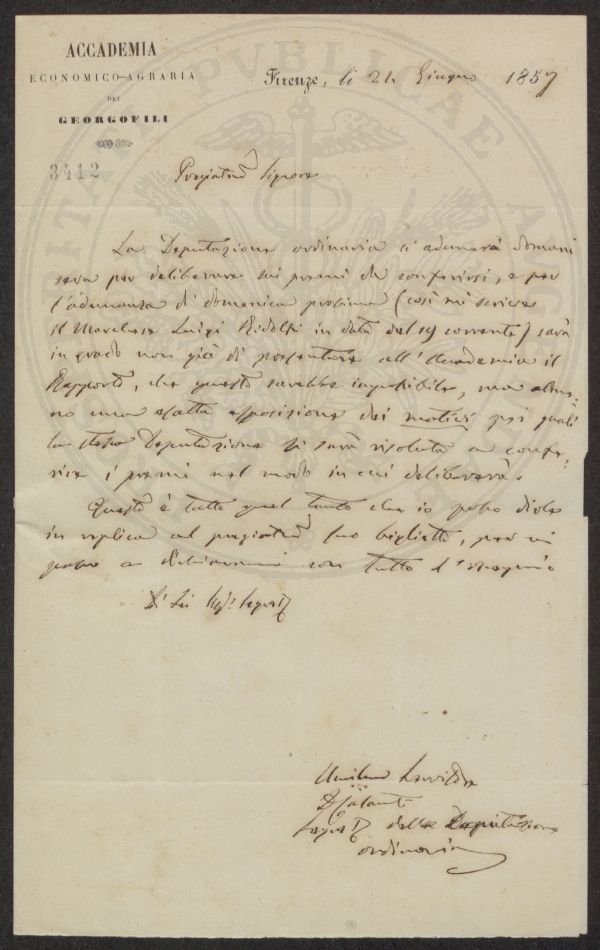 ACCADEMIA
ECONOMICO-AGRARIA
DEI
GEORGOFILI
3412
Firenze, li 24 Giugno 1857
Pregiatmo Signore
La Deputazione ordinaria si adunerà domani
sera per deliberare sui premi da conferirsi, e per
l'adunanza di domenica prossima (così mi scrive
il Marchese Luigi Ridolfi in data del 19 corrente) sarà
in grado non già di presentare all'Accademia il
Rapporto, che questo sarebbe impossibile, ma alme-
no una esatta esposizione dei motivi pei quali
la stessa Deputazione si sarà risoluta a confe-
rire i premi nel modo in cui delibererà.
Questo è tutto quel tanto che io posso dirle
in replica al pregiatmo suo biglietto, per cui
passo a dichiararmi con tutto l'ossequio
Di Lei
della Deputazione
ordinaria